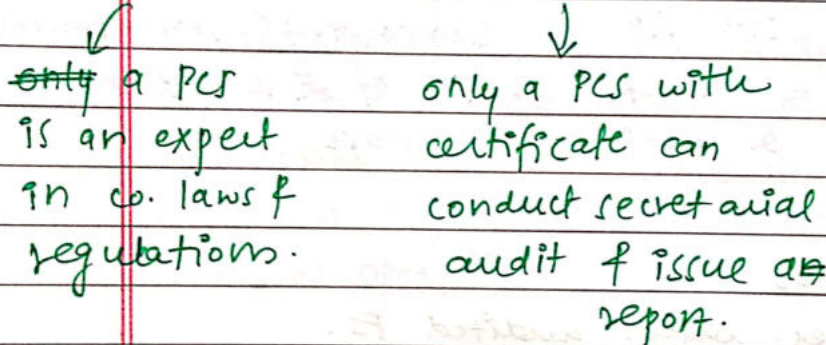 only a PCS
is an expert
in co. laws &
regulations.
only a PCS with
certificate can
conduct secretarial
audit & issue an
report.